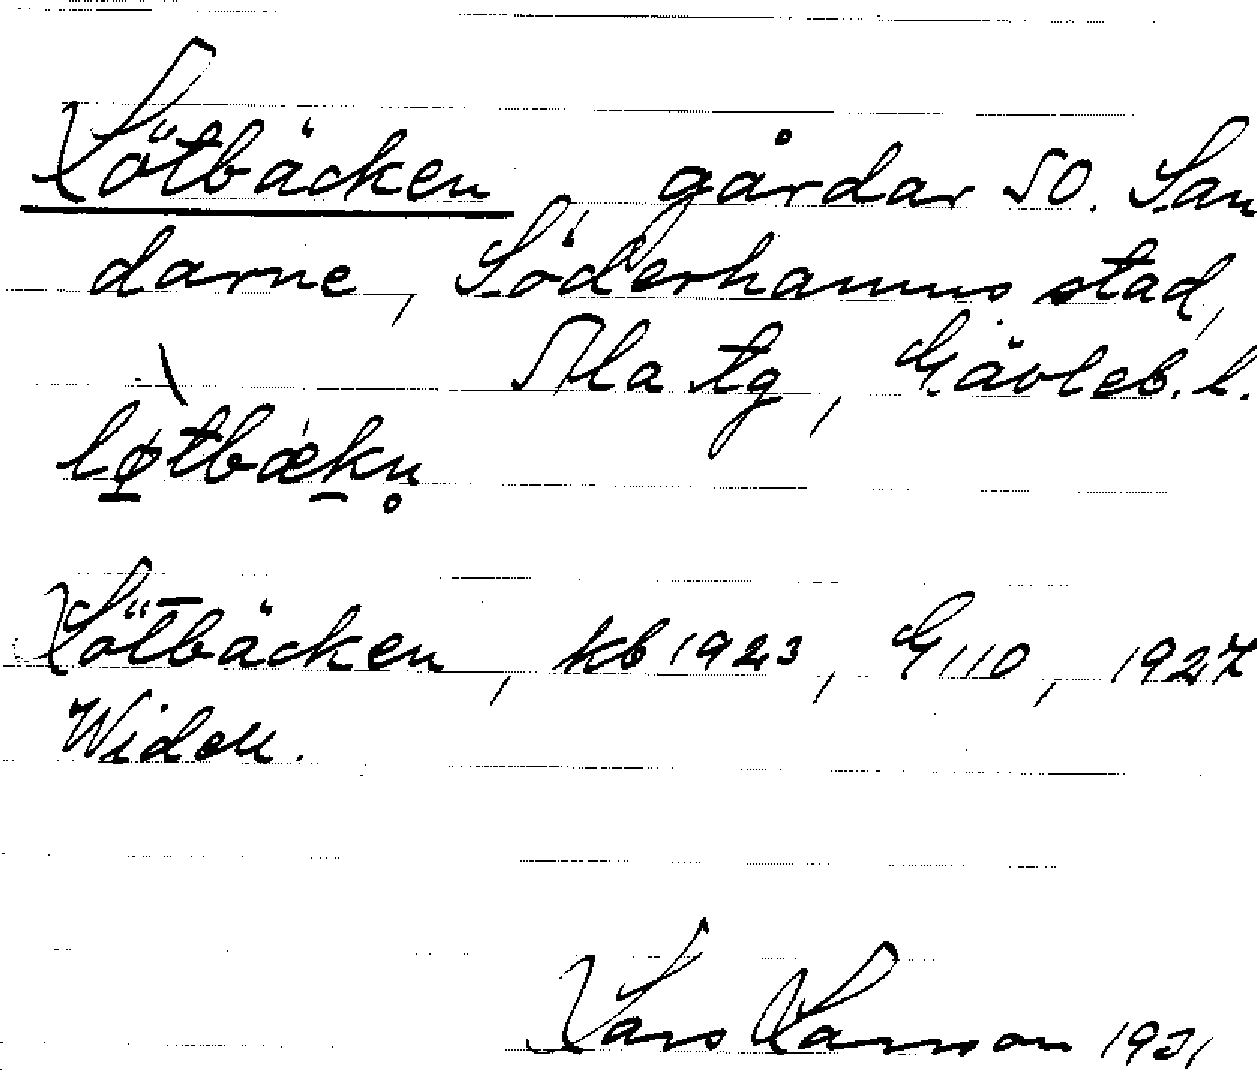 Lötbäcken, gårdar SO. San
darne, Söderhamns stad,
Ala tg, Gävleb. l.
løtbækn̥
Lötbäcken, kb 1923, G 110, 1927
Widell.
Lars Larsson 1931